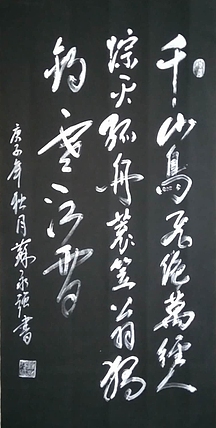 千山鳥飛絕萬徑人
踪灭孤舟蓑笠翁獨
釣寒江雪
庚子年秋月蘇永強書